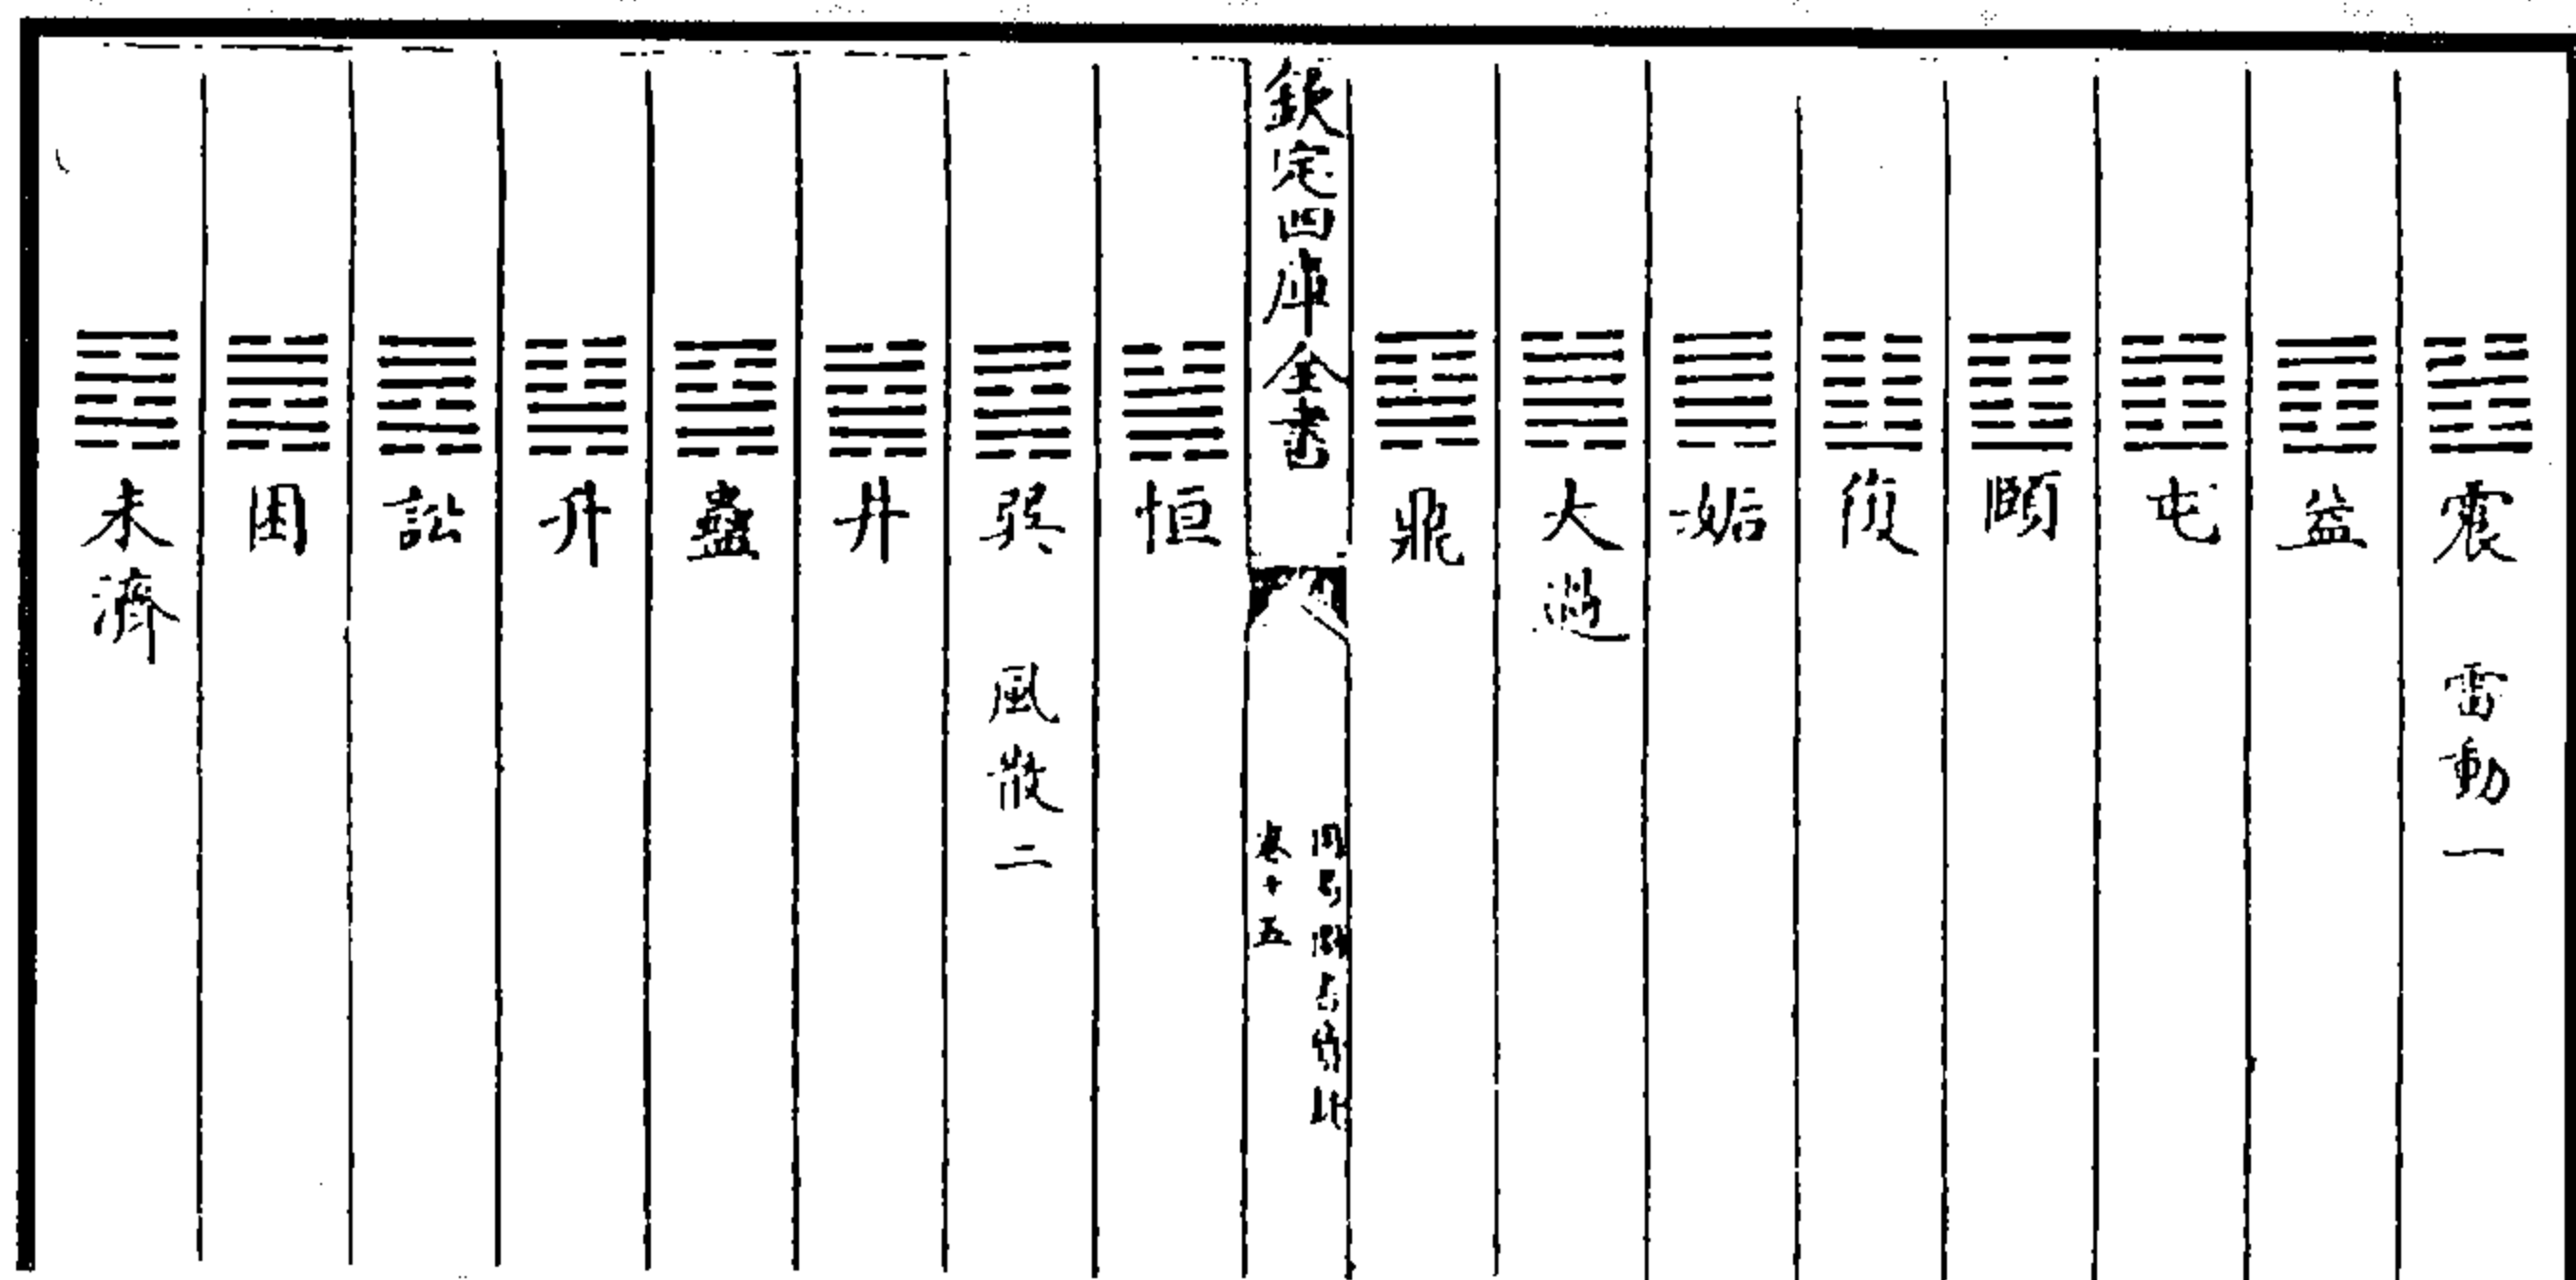 震 雷動一
益
屯
頤
復
姤
大過
鼎
欽定四庫全書
卷十五
恒
巽 風散二
井
蠱
升
訟
困
未濟